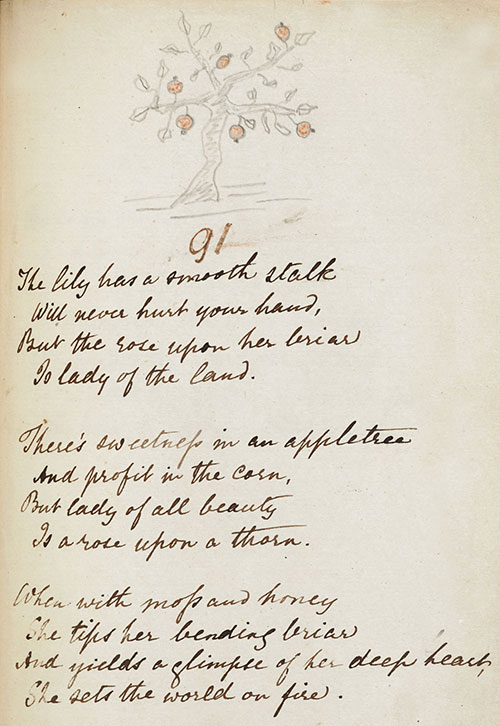 91
The lily has a smooth stalk
Will never hurt your hand,
But the rose upon her briar
Is lady of the land.
There's sweetness in an appletree
And profit in the corn,
But lady of all beauty
Is a rose upon a thorn.
When with moss and honey
She tips her bending briar
And yields a glimpse of her deep heart,
She sets the world on fire.